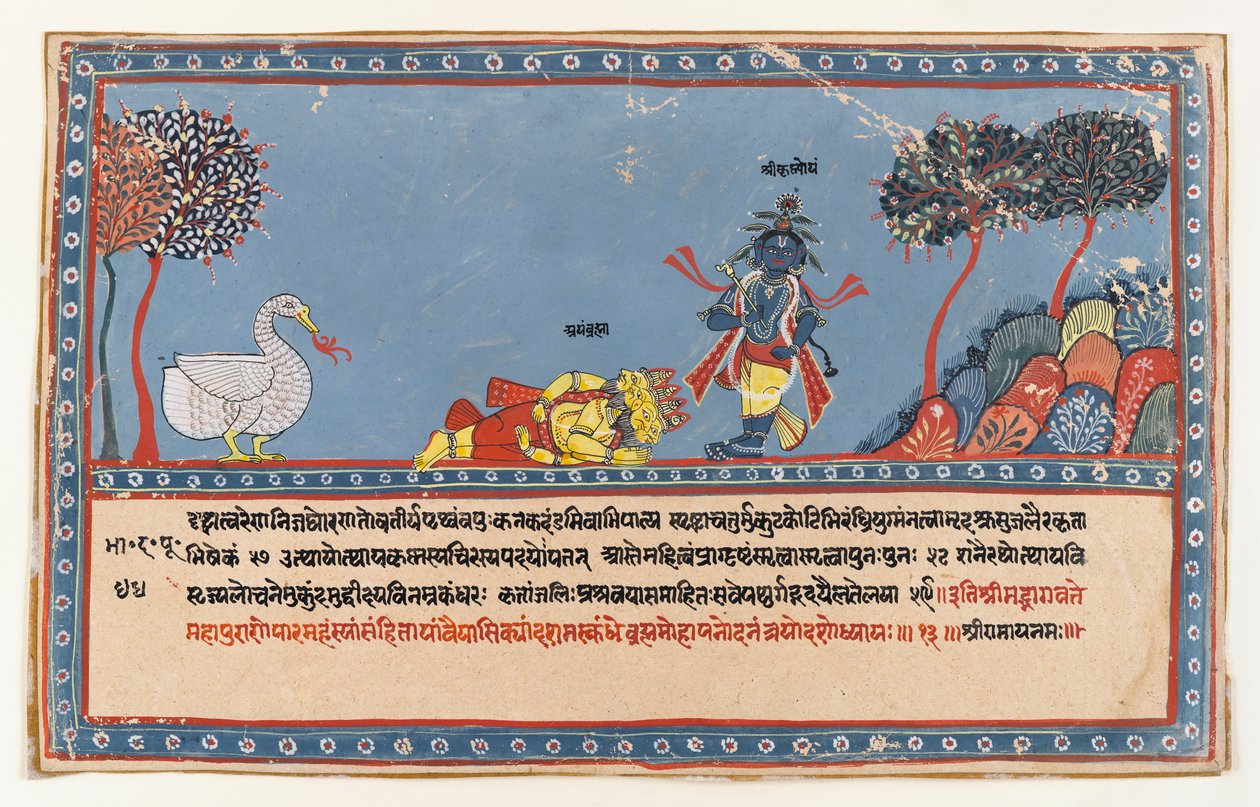 श्रीकृष्णोयं
अयंब्रह्मा
दृष्ट्वात्वरेणनिजधोरणतोवतीर्यपृथ्व्यंवपुःकनकदंडमिवाभिपात्य स्पृष्ट्वाचतुर्मुकुटकोटिभिरंघ्रियुग्मंनत्वामुदश्रुसुजलैरकृता
भा॰द॰पू॰ भिषेकं ५७ उत्थायोत्थायकृष्णस्यचिरस्यपदयोःपतन् आस्तेमहित्वंप्राग्दृष्टंस्मृत्वास्मृत्वापुनःपुनः ५८ शनैरथोत्थायवि
मृज्यलोचनेमुकुंदमुद्वीक्ष्यविनम्रकंधरः कृतांजलिःप्रश्रयवासमाहितःसवेपथुर्गद्गदयैलतेलया ५९॥इतिश्रीमद्भागवते
महापुराणेपारमहंस्यांसंहितायांवैयासिक्यांदशमस्कंधेब्रह्ममोहापनोदनंत्रयोदशोध्यायः॥॥१३॥॥श्रीरामायनमः॥॥